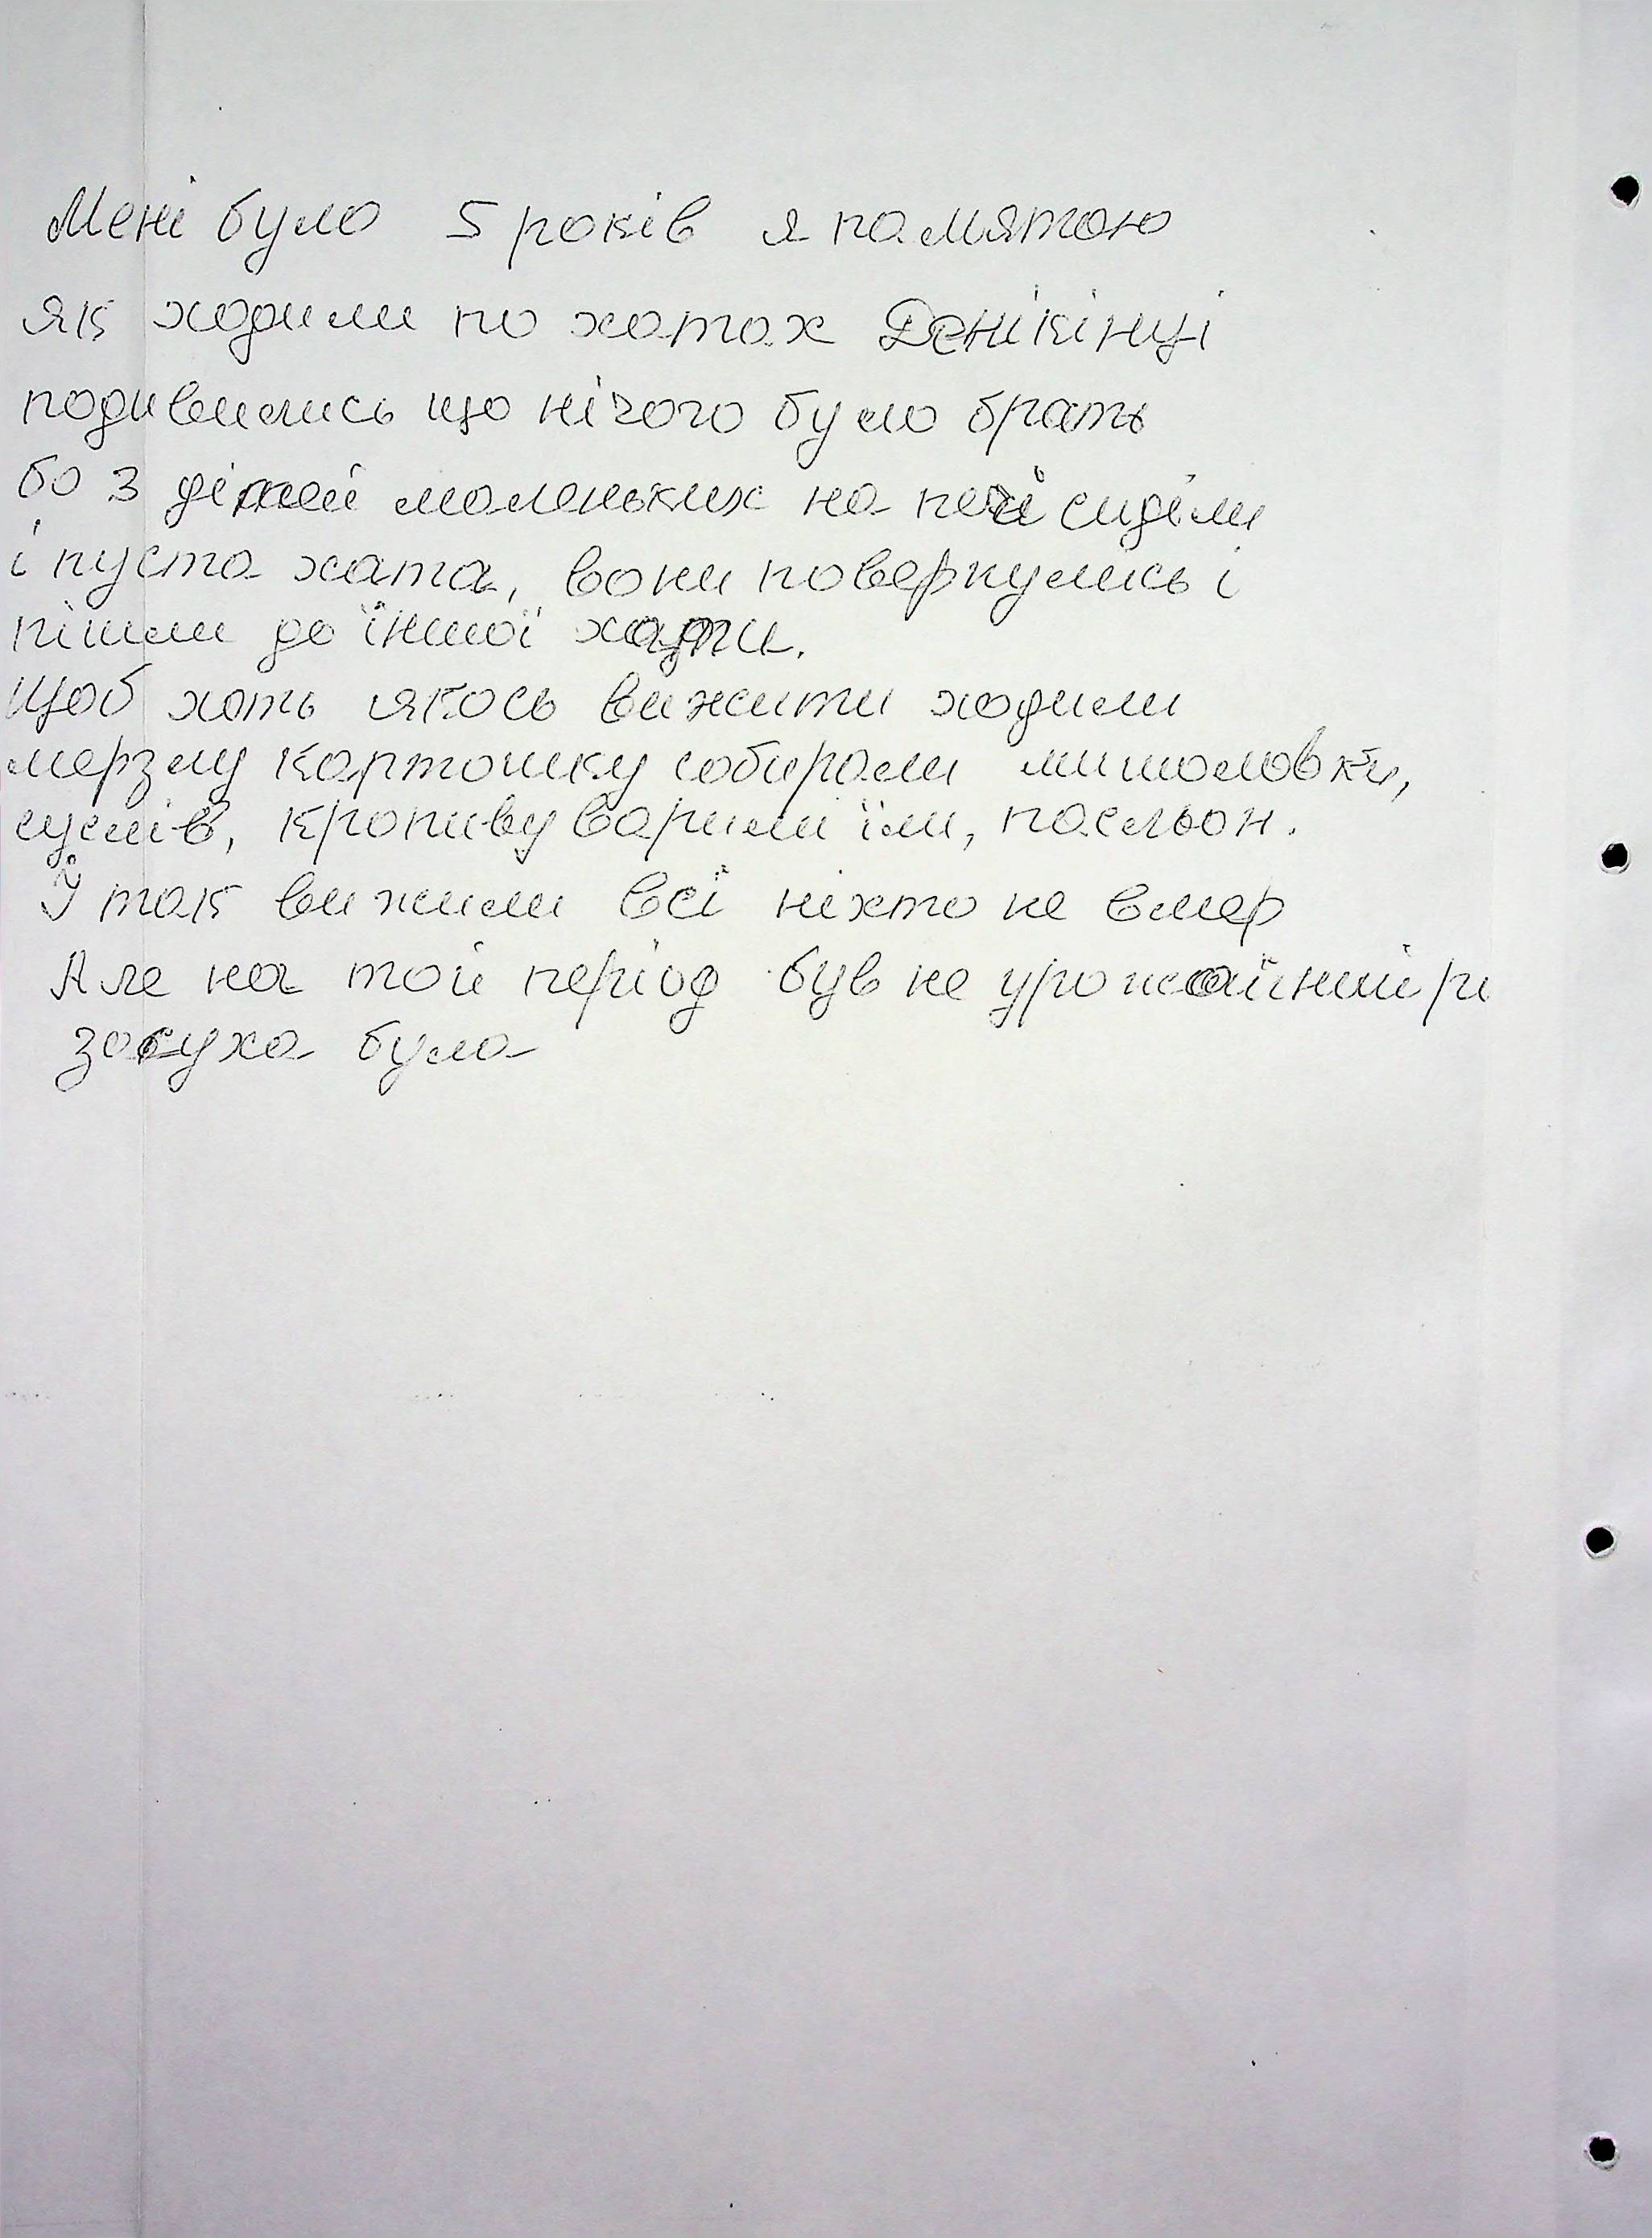 Мені було 5 років я памятаю
як ходили по хатах Денікінці
подивились що нічого було брать
бо 3 дітей маленьких на печі сиділи
і пуста хата, вони повернулись і
пішли до їншої хати.
Щоб хоть якось вижити ходили
мерзлу картошку собирали мишоловки,
суслів, кропиву варили їли, пасльон.
Й так вижили всі ніхто не вмер
Але на той період був не урожайний рі
засуха була